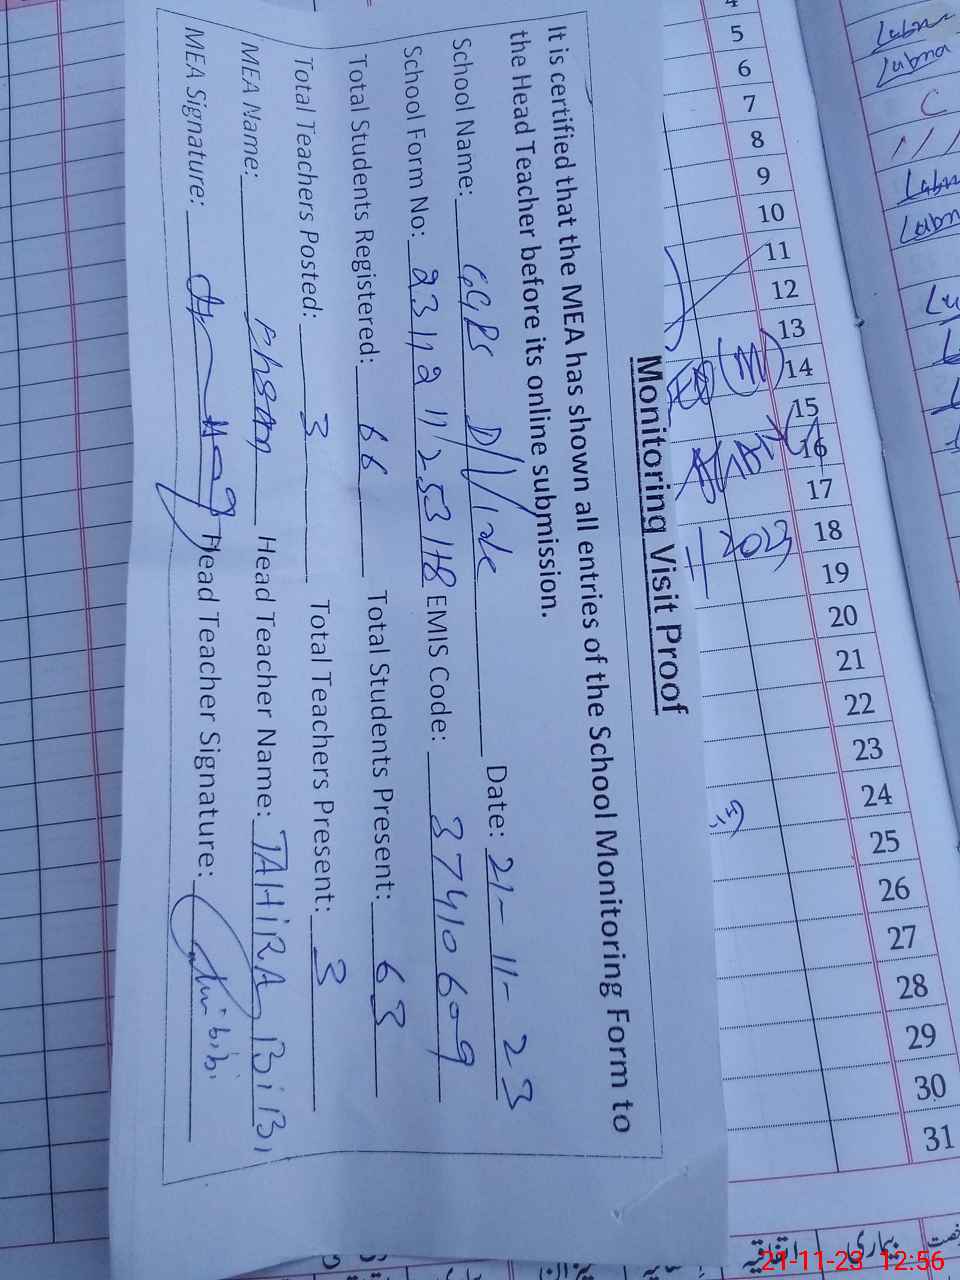 Monitoring Visit Proof
It is certified that the MEA has shown all entries of the School Monitoring Form to
the Head Teacher before its online submission.
School Name: GGPS Date: 21-11-23
School Form No: EMIS Code: 37410609
Total Students Registered: 66 Total Students Present: 63
Total Teachers Posted: 3 Total Teachers Present: 3
MEA Name: Ehsan Head Teacher Name: TAHiRA BiBi
MEA Signature: Head Teacher Signature: bibi
4
5
6
7
8
9
10
11
12
13
14
15
16
17
18
19
20
21
22
23
24
25
26
27
28
29
30
31
(M)
2023
Lubna
Lubna
C
Lubna
Lubna
بیماری
اتفاقیہ
21-11-23 12:56